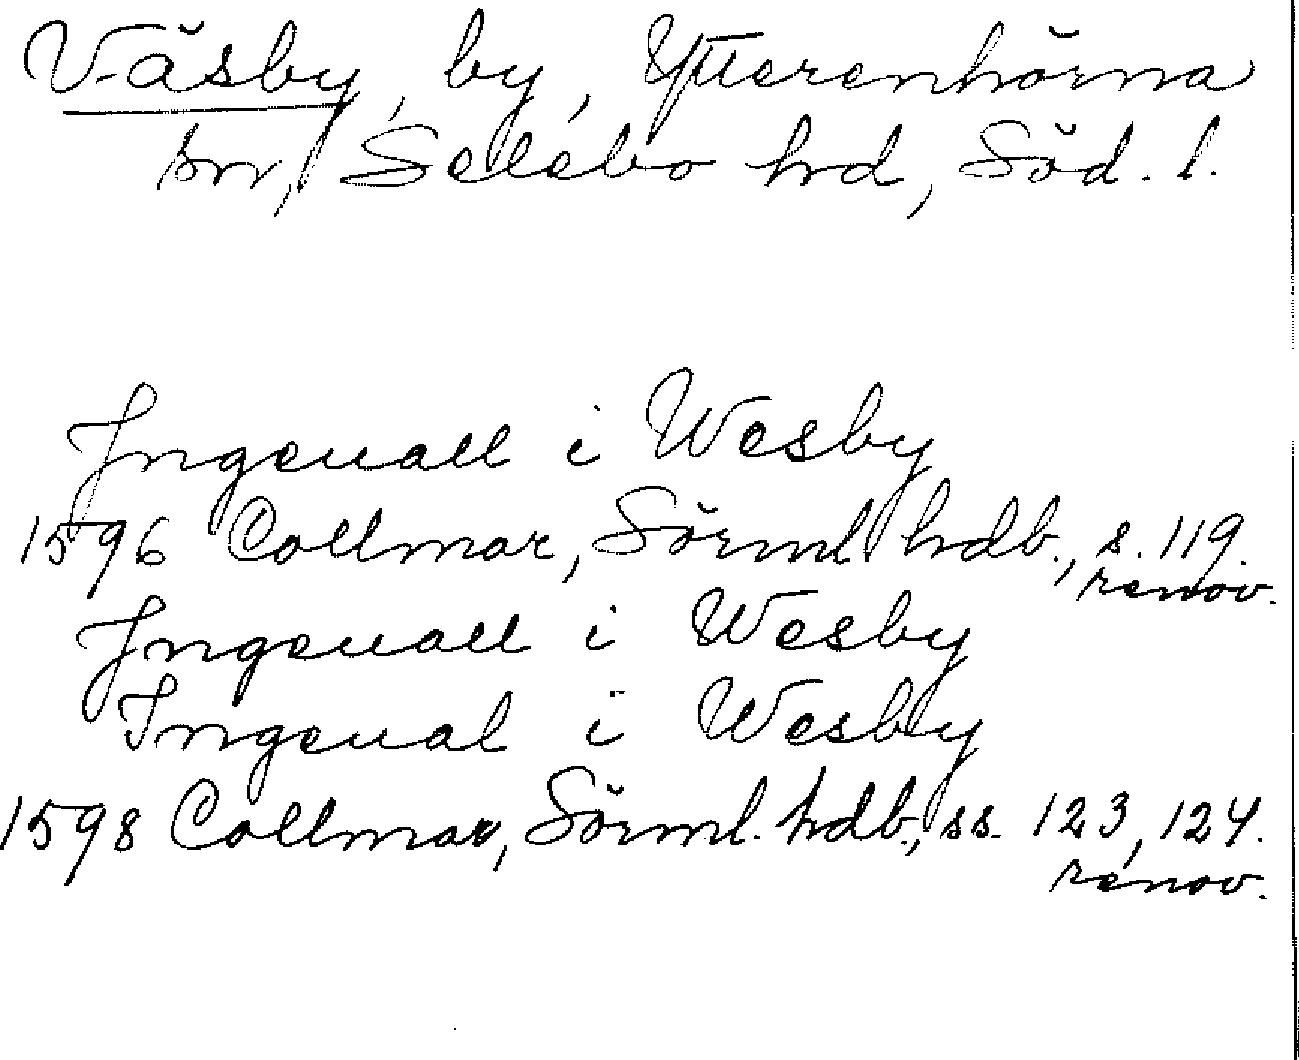 Väsby, by, Ytterenhörna
sn, Selebo hrd, Söd. l.
Ingeuall i Wesby
1596 Collmar, Sörml hrdb., s. 119.
renov.
Ingeuall i Wesby
Ingeual i Wesby
1598 Collmar, Sörml. hrdb., ss. 123, 124.
renov.